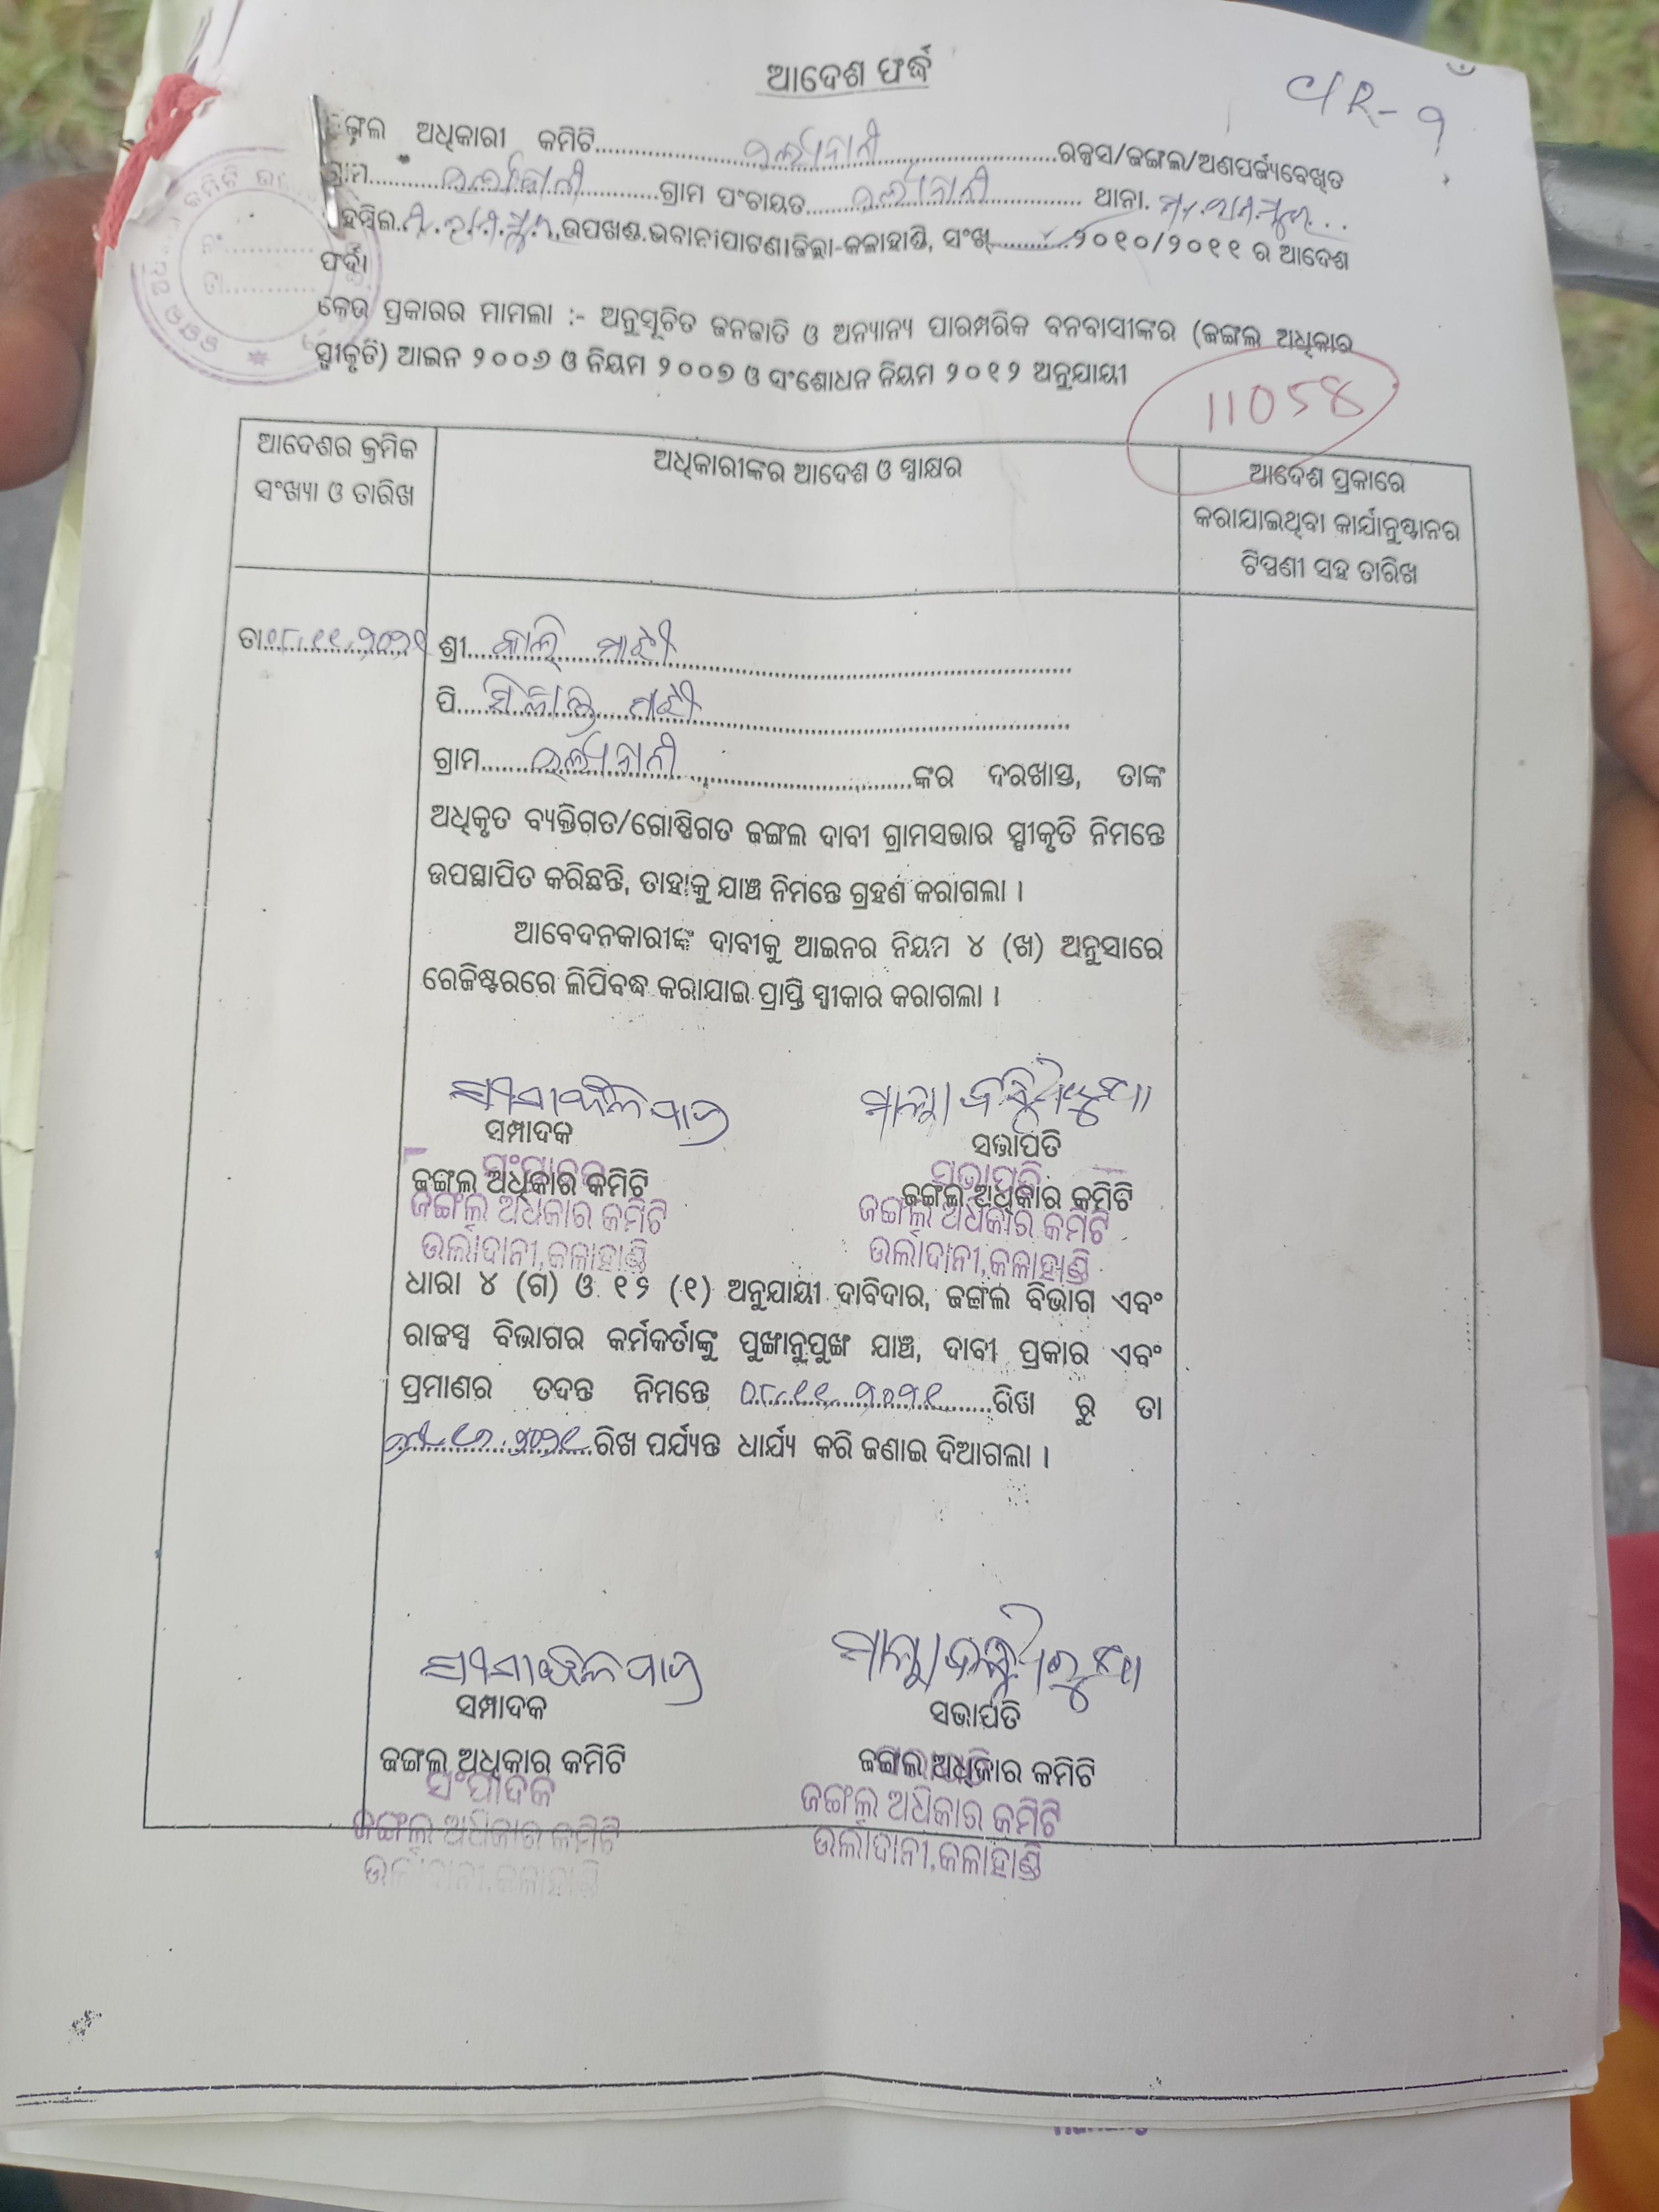 ଆଦେଶ ଫର୍ଦ୍ଦ
CR-୨
ଜଙ୍ଗଲ ଅଧିକାରୀ କମିଟି..........ଉର୍ଲାଦାନୀ..........ରକ୍ସସ/ଜଙ୍ଗଲ/ଅଣପର୍ଯ୍ୟବେଖିତ
ଗ୍ରାମ..........ଉର୍ଲାଦାନୀ..........ଗ୍ରାମ ପଂଚାୟତ..........ଉର୍ଲାଦାନୀ.......... ଥାନା. ମ. ରାମପୁର...
ତହସିଲ.ମ. ରାମପୁର.,ଉପଖଣ୍ଡ.ଭବାନୀପାଟଣା।ଜିଲ୍ଲା-କଳାହାଣ୍ଡି, ସଂଖ୍..........୨୦୧୦/୨୦୧୧ ର ଆଦେଶ
ଫର୍ଦ୍ଦ।
କେଉ ପ୍ରକାରର ମାମଲା :- ଅନୁସୂଚିତ ଜନଜାତି ଓ ଅନ୍ୟାନ୍ୟ ପାରମ୍ପରିକ ବନବାସୀଙ୍କର (ଜଙ୍ଗଲ ଅଧିକାର
ସ୍ୱୀକୃତି) ଆଇନ ୨୦୦୬ ଓ ନିୟମ ୨୦୦୭ ଓ ସଂଶୋଧନ ନିୟମ ୨୦୧୨ ଅନୁଯାୟୀ
11058
ଆଦେଶର କ୍ରମିକ
ସଂଖ୍ୟା ଓ ତାରିଖ
ଅଧିକାରୀଙ୍କର ଆଦେଶ ଓ ସ୍ୱାକ୍ଷର
ଆଦେଶ ପ୍ରକାରେ
କରାଯାଇଥିବା କାର୍ଯାନୁଷ୍ଠାନର
ଟିପ୍ପଣୀ ସହ ତାରିଖ
ତା୧୮.୧୧.୨୦୨୧
ଶ୍ରୀ...... ମାଝୀ
ପି...... ମାଝୀ
ଗ୍ରାମ......ଉର୍ଲାଦାନୀ..........ଙ୍କର ଦରଖାସ୍ତ, ତାଙ୍କ
ଅଧିକୃତ ବ୍ୟକ୍ତିଗତ/ଗୋଷ୍ଠିଗତ ଜଙ୍ଗଲ ଦାବୀ ଗ୍ରାମସଭାର ସ୍ୱୀକୃତି ନିମନ୍ତେ
ଉପସ୍ଥାପିତ କରିଛନ୍ତି, ତାହାକୁ ଯାଞ୍ଚ ନିମନ୍ତେ ଗ୍ରହଣ କରାଗଲା ।
ଆବେଦନକାରୀଙ୍କ ଦାବୀକୁ ଆଇନର ନିୟମ ୪ (ଖ) ଅନୁସାରେ
ରେଜିଷ୍ଟରରେ ଲିପିବଦ୍ଧ କରାଯାଇ ପ୍ରାପ୍ତି ସ୍ୱୀକାର କରାଗଲା ।
ସମ୍ପାଦକ
ସଭାପତି
ସଂପାଦକ
ସଭାପତି
ଜଙ୍ଗଲ ଅଧିକାର କମିଟି
ଜଙ୍ଗଲ ଅଧିକାର କମିଟି
ଜଙ୍ଗଲ ଅଧିକାର କମିଟି
ଜଙ୍ଗଲ ଅଧିକାର କମିଟି
ଉର୍ଲାଦାନୀ,କଳାହାଣ୍ଡି
ଉର୍ଲାଦାନୀ,କଳାହାଣ୍ଡି
ଧାରା ୪ (ଗ) ଓ ୧୨ (୧) ଅନୁଯାୟୀ ଦାବିଦାର, ଜଙ୍ଗଲ ବିଭାଗ ଏବଂ
ରାଜସ୍ୱ ବିଭାଗର କର୍ମକର୍ତାଙ୍କୁ ପୁଙ୍ଖାନୁପୁଙ୍ଖ ଯାଞ୍ଚ, ଦାବୀ ପ୍ରକାର ଏବଂ
ପ୍ରମାଣର ତଦନ୍ତ ନିମନ୍ତେ ୧୮.୧୧.୨୦୨୧..........ରିଖ ରୁ ତା
....୨୦୨୧..ରିଖ ପର୍ଯ୍ୟନ୍ତ ଧାର୍ଯ୍ୟ କରି ଜଣାଇ ଦିଆଗଲା ।
ସମ୍ପାଦକ
ସଭାପତି
ଜଙ୍ଗଲ ଅଧିକାର କମିଟି
ଜଙ୍ଗଲ ଅଧିକାର କମିଟି
ସଂପାଦକ
ଜଙ୍ଗଲ ଅଧିକାର କମିଟି
ଜଙ୍ଗଲ ଅଧିକାର କମିଟି
ଉର୍ଲାଦାନୀ,କଳାହାଣ୍ଡି
ଉର୍ଲାଦାନୀ,କଳାହାଣ୍ଡି